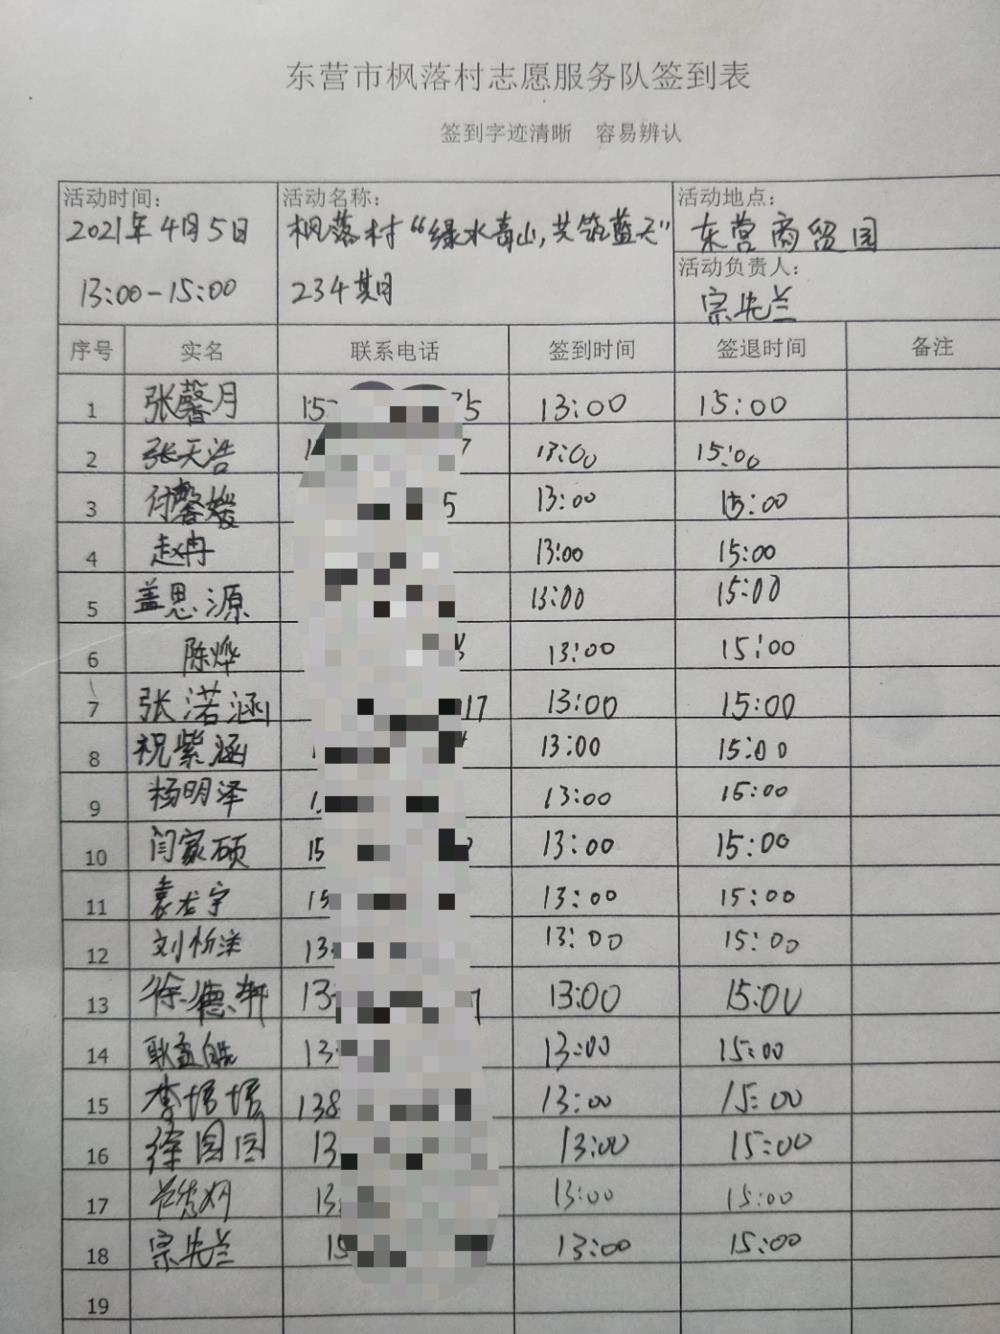 东营市枫落村志愿服务队签到表
签到字迹清晰 容易辨认
活动时间: 活动名称: 活动地点:
2021年4月5日 枫落村“绿水青山,共筑蓝天” 东营商贸园
13:00-15:00 234期 活动负责人:
宗先兰
序号 实名 联系电话 签到时间 签退时间 备注
1 张馨月 15 75 13:00 15:00
2 张天浩 7 13:00 15:00
3 付馨媛 5 13:00 15:00
4 赵冉 13:00 15:00
5 盖思源 13:00 15:00
6 陈烨 13:00 15:00
7 张渃涵 17 13:00 15:00
8 祝紫涵 13:00 15:00
9 杨明泽 13:00 15:00
10 闫家硕 15 13:00 15:00
11 袁 宇 15 13:00 15:00
12 刘 13 13:00 15:00
13 徐德轩 13 13:00 15:00
14 耿孟皓 13 13:00 15:00
15 李培培 138 13:00 15:00
16 徐园园 13 13:00 15:00
17 13 13:00 15:00
18 宗先兰 15 13:00 15:00
19